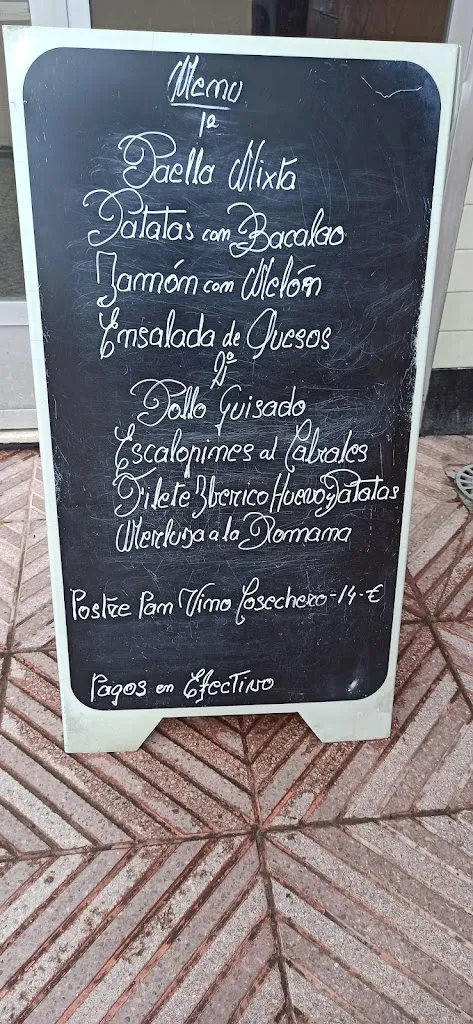 Menu
1º
Paella Mixta
Patatas con Bacalao
Jamón con Melón
Ensalada de Quesos
2º
Pollo Guisado
Escalopines al Cabrales
Filete Iberico Huevo y Patatas
Merluza a la Romana
Postre Pan Vino Cosechero-14-€
Pagos en Efectivo